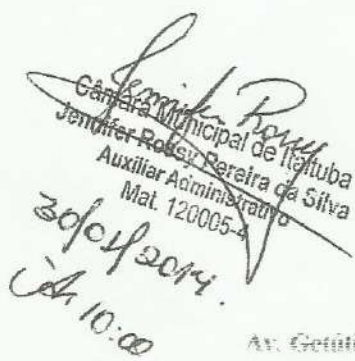 Câmara Municipal de Itaituba
Jennifer Rossy Pereira da Silva
Auxiliar Administrativo
Mat. 120005-4
30/01/2014.
Às 10:00
Av. Getúl